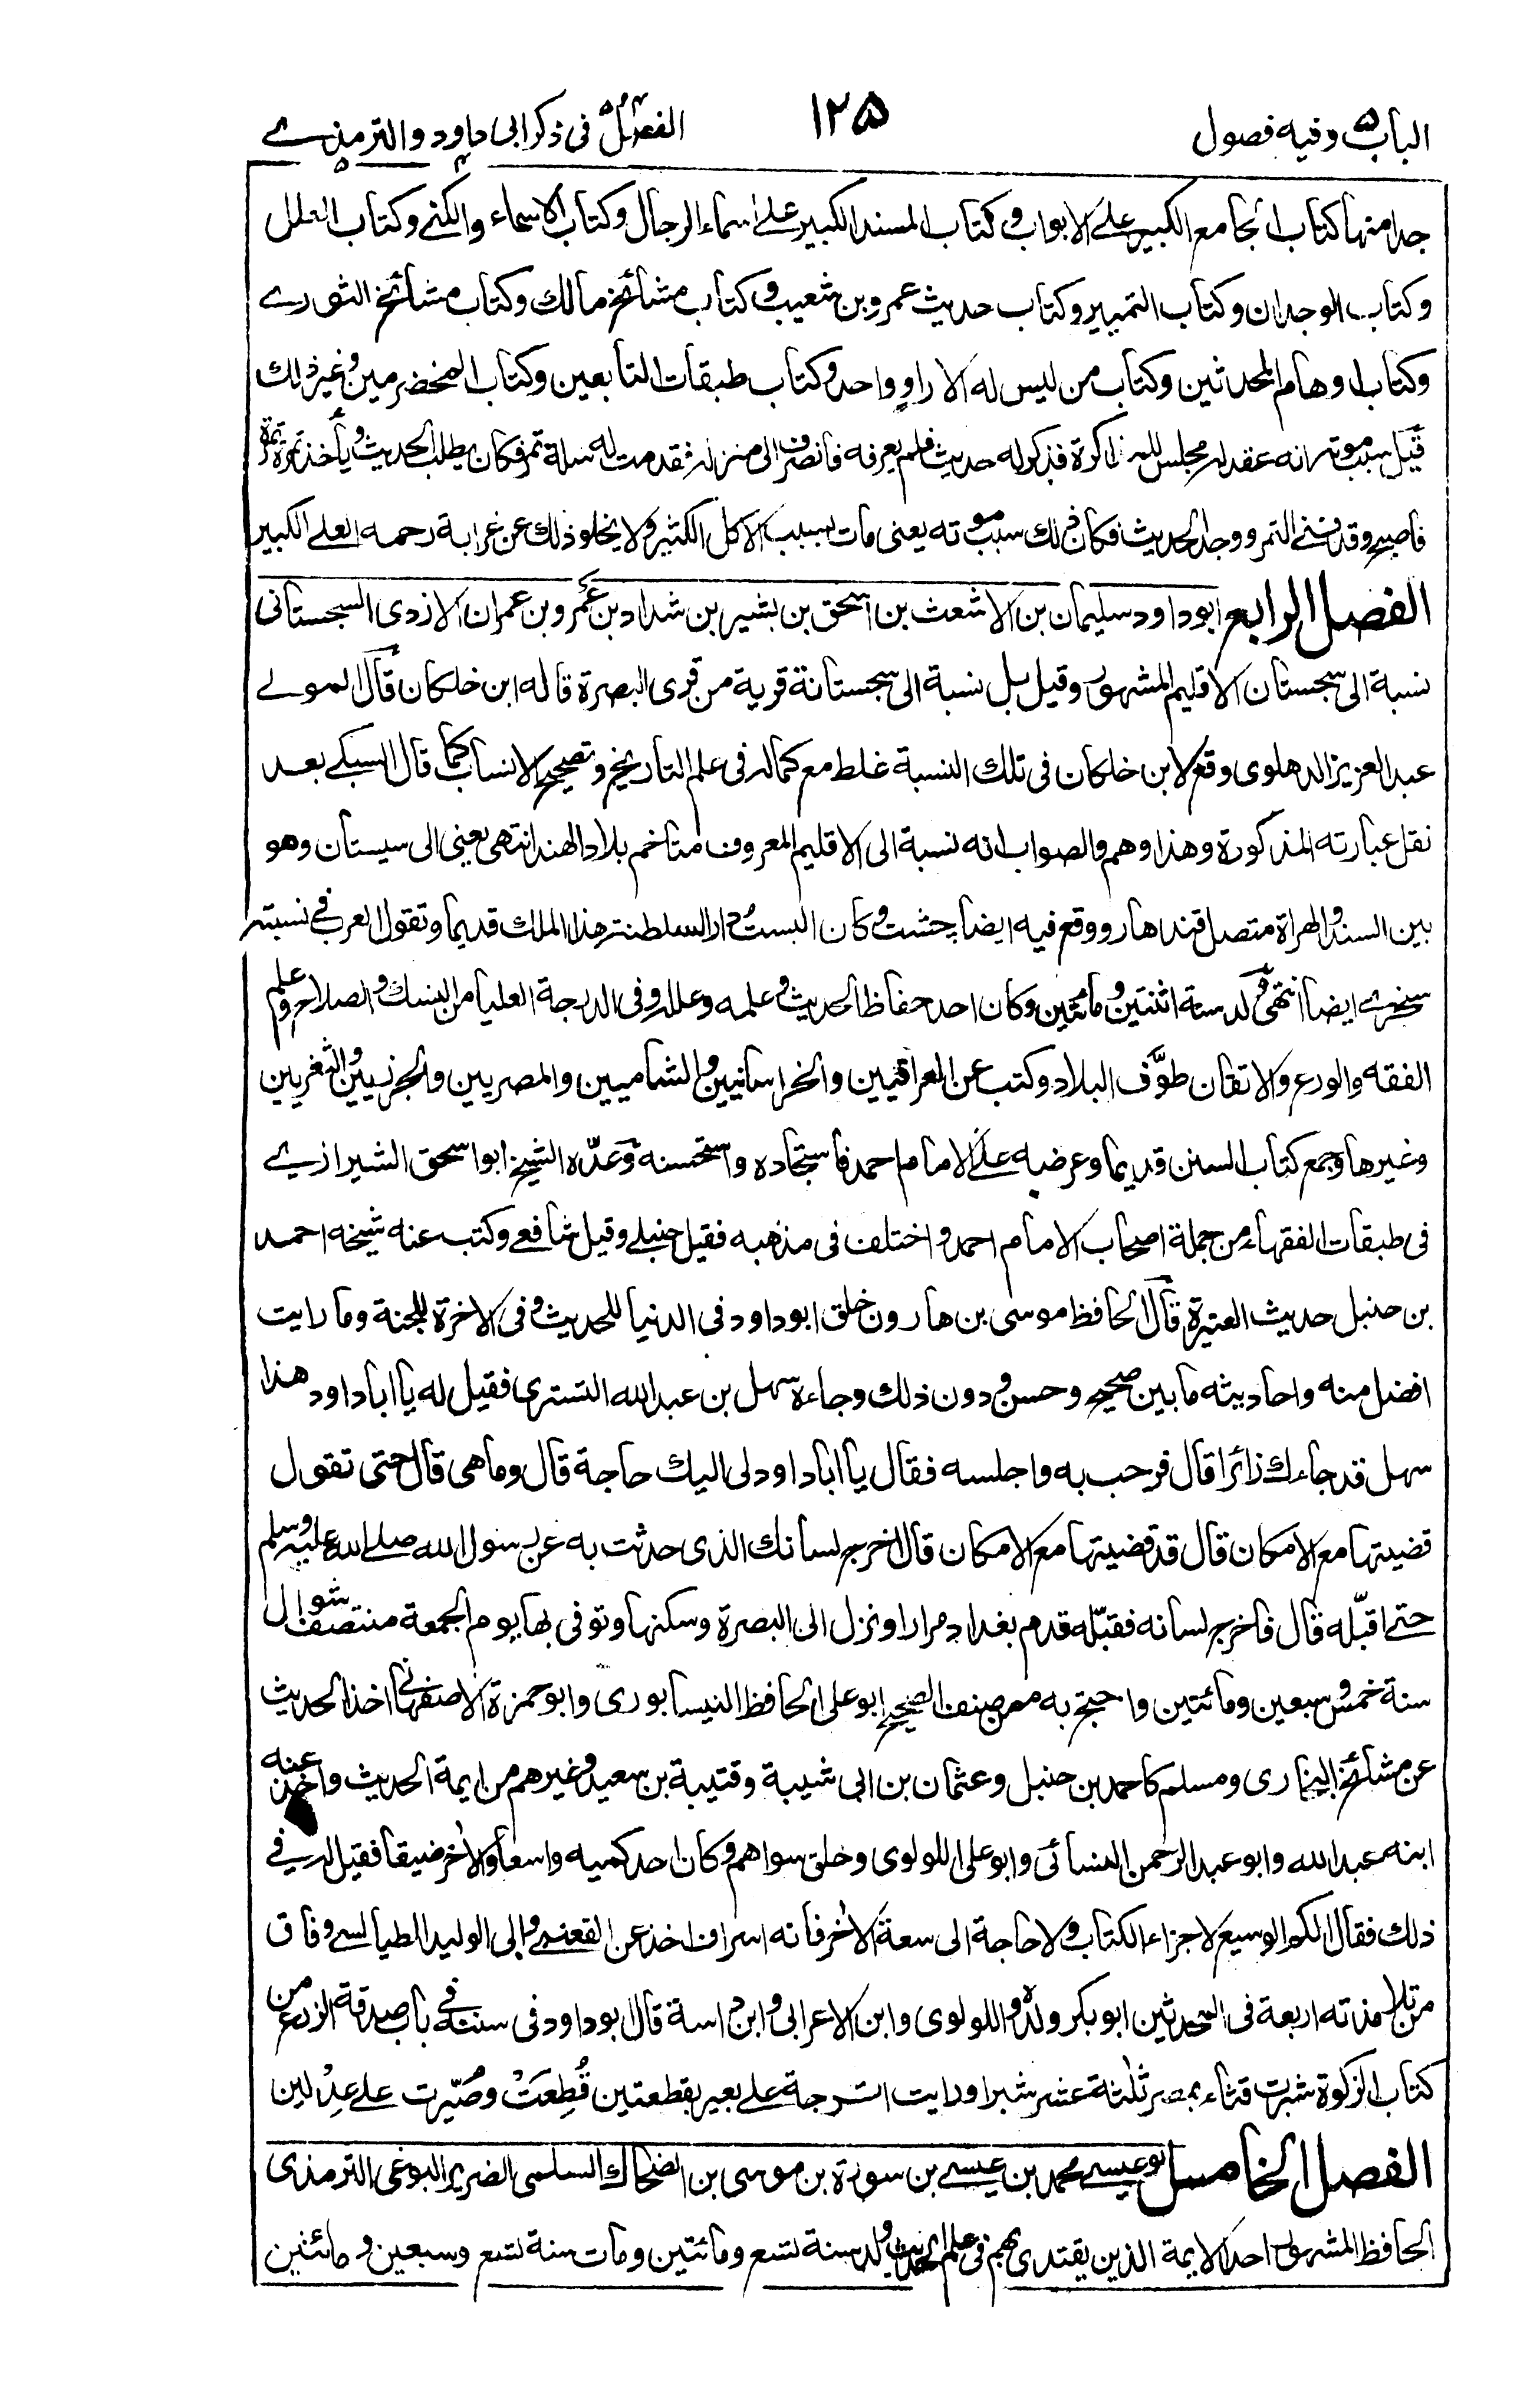 الباب ۵ وفيه فصول
۱۲۵
الفصل ۴ و ۵ فى ذكر ابى داود والترمذے
جدا منها كتاب الجامع الكبير علے الابواب وكتاب المسند الكبير علے اسماء الرجال وكتاب الاسماء والكنے وكتاب العلل
وكتاب الوجدان وكتاب التمييز وكتاب حديث عمرو بن شعيب وكتاب مشائخ مالك وكتاب مشائخ الثورے
وكتاب اوهام المحدثين وكتاب من ليس له الا راوٍ واحد وكتاب طبقات التابعين وكتاب المخضرمين وغير ذلك
قيل سبب موته انه عقد له مجلس للمذاكرة فذكر له حديث فلم يعرفه فانصرف الى منزله فقدمت له سلة تمر فكان يطلب الحديث ويأخذ تمرة تمرة
فاصبح وقد فنے التمر ووجد الحديث فكان ذلك سبب موته يعنى مات بسبب الاكل الكثير ولا يخلو ذلك عن غرابة رحمه العلے الكبير
الفصل الرابع ابو داود سليمان بن الاشعث بن اسحق بن بشير بن شداد بن عمرو بن عمران الازدى السجستانى
نسبة الى سجستان الاقليم المشهور وقيل بل نسبة الى سجستانة قرية من قرى البصرة قاله ابن خلكان قال المولے
عبد العزيز الدهلوى وقع لابن خلكان فى تلك النسبة غلط مع كماله فى علم التاريخ وتصحيح الانساب كما قال السبكے بعد
نقل عبارته المذكورة وهذا وهم والصواب انه نسبة الى الاقليم المعروف متاخم بلاد الهند انتهى يعنى الى سيستان وهو
بين السند والهراة متصل قندهار ووقع فيه ايضا چشت وكان البُست دار السلطنة هذا الملك قديما وتقول العرب فے نسبته
سجزے ايضا انتهى ولد سنة اثنتين ومائتين وكان احد حفاظ الحديث وعلمه وعلله وفى الدرجة العليا من النسك والصلاح وعلم
الفقه والورع والاتقان طوَّف البلاد وكتب عن العراقيين والخراسانيين والشاميين والمصريين والجزريين والثغريين
وغيرها وجمع كتاب السنن قديما وعرضه علے الامام احمد فاستجاده واستحسنه وعدّه الشيخ ابو اسحق الشيرازے
فى طبقات الفقهاء من جملة اصحاب الامام احمد واختلف فى مذهبه فقيل حنبلے وقيل شافعے وكتب عنه شيخه احمد
بن حنبل حديث العتيرة قال الحافظ موسى بن هارون خلق ابو داود فى الدنيا للحديث وفى الاخرة للجنة وما رايت
افضل منه واحاديثه ما بين صحيح وحسن ودون ذلك وجاءه سهل بن عبد الله التسترى فقيل له يا ابا داود هذا
سهل قد جاءك زائرا قال فرحب به واجلسه فقال يا ابا داود لى اليك حاجة قال وما هى قال حتى تقول
قضيتها مع الامكان قال قد قضيتها مع الامكان قال اخرج لسانك الذى حدثت به عن رسول الله صلے الله عليه وسلم
حتے اقبّله قال فاخرج لسانه فقبّله قدم بغداد مرارا ونزل الى البصرة وسكنها وتوفى بها يوم الجمعة منتصف شوال
سنة خمس وسبعين ومائتين واحتج به ممن صنف الصحيح ابو على الحافظ النيسابورى وابو حمزة الاصفهانے اخذ الحديث
عن مشائخ البخارى ومسلم كاحمد بن حنبل وعثمان بن ابى شيبة وقتيبة بن سعيد وغيرهم من ايمة الحديث واخذ عنه
ابنه عبد الله وابو عبد الرحمن النسائى وابو على اللولوى وخلق سواهم وكان احد كميه واسعا والاخر ضيقا فقيل له فے
ذلك فقال الكم الوسيع لاجزاء الكتاب ولا حاجة الى سعة الاخر فانه اسراف اخذ عن القعنبے وابى الوليد الطيالسے وفاق
من تلامذته اربعة فى المحدثين ابو بكر ولده واللولوى وابن الاعرابى وابن داسة قال ابو داود فى سننه فے باب صدقة الزرع من
كتاب الزكوة شبرت قثاء بمصر ثلثة عشر شبرا ورايت اترجة على بعير بقطعتين قُطِعَتْ وصُيِّرت علے عِدْلين
الفصل الخامس ابو عيسے محمد بن عيسے بن سورة بن موسى بن الضحاك السلمى الضرير البوغى الترمذى
الحافظ المشهور احد الايمة الذين يقتدى بهم فى علم الحديث ولد سنة تسع ومائتين ومات سنة تسع وسبعين ومائتين